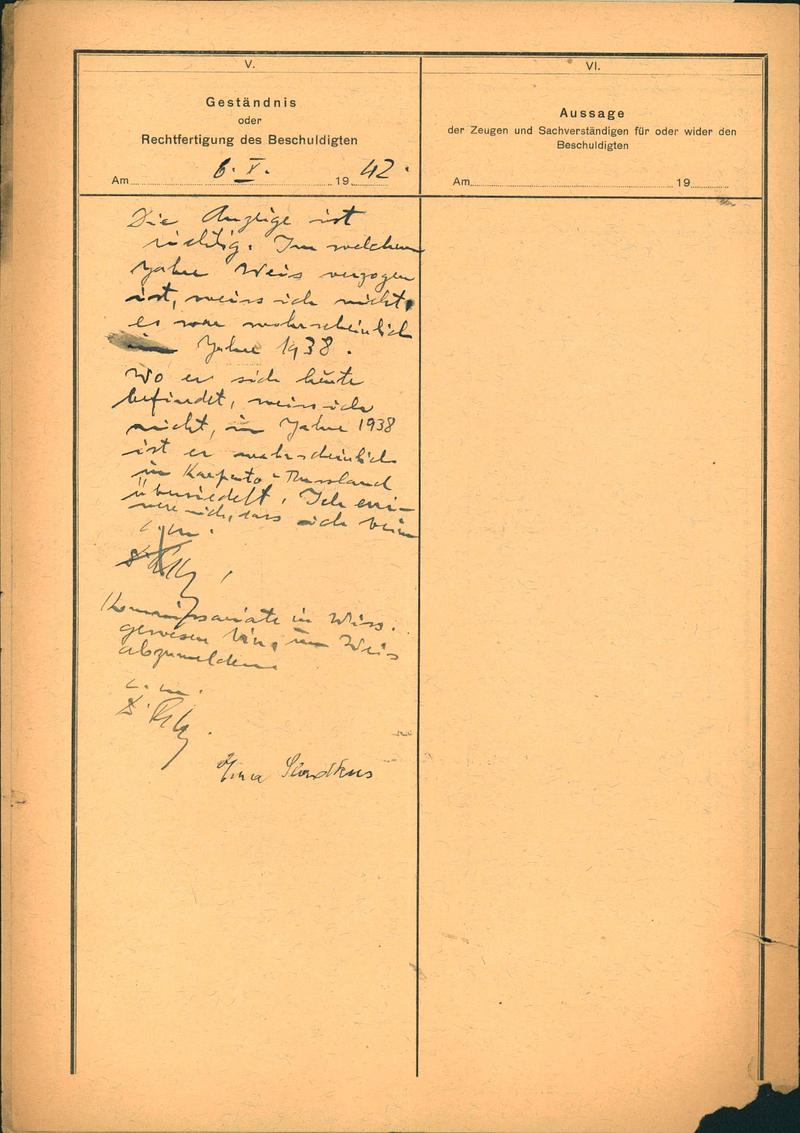 V.
Geständnis
oder
Rechtfertigung des Beschuldigten
Am 6. V. 1942.
Die Anzeige ist
richtig. Im welchem
Jahre Weis verzogen
ist, weiss ich nicht,
es war wahrscheinlich
im Jahre 1938.
Wo er sich heute
befindet, weiss ich
nicht, im Jahre 1938
ist er wahrscheinlich
in Karpato-Russland
übersiedelt. Ich erin-
nere mich, dass ich beim
Kommissariate in
gewesen bin, um Weis
abzumelden.
VI.
Aussage
der Zeugen und Sachverständigen für oder wider den
Beschuldigten
Am 19